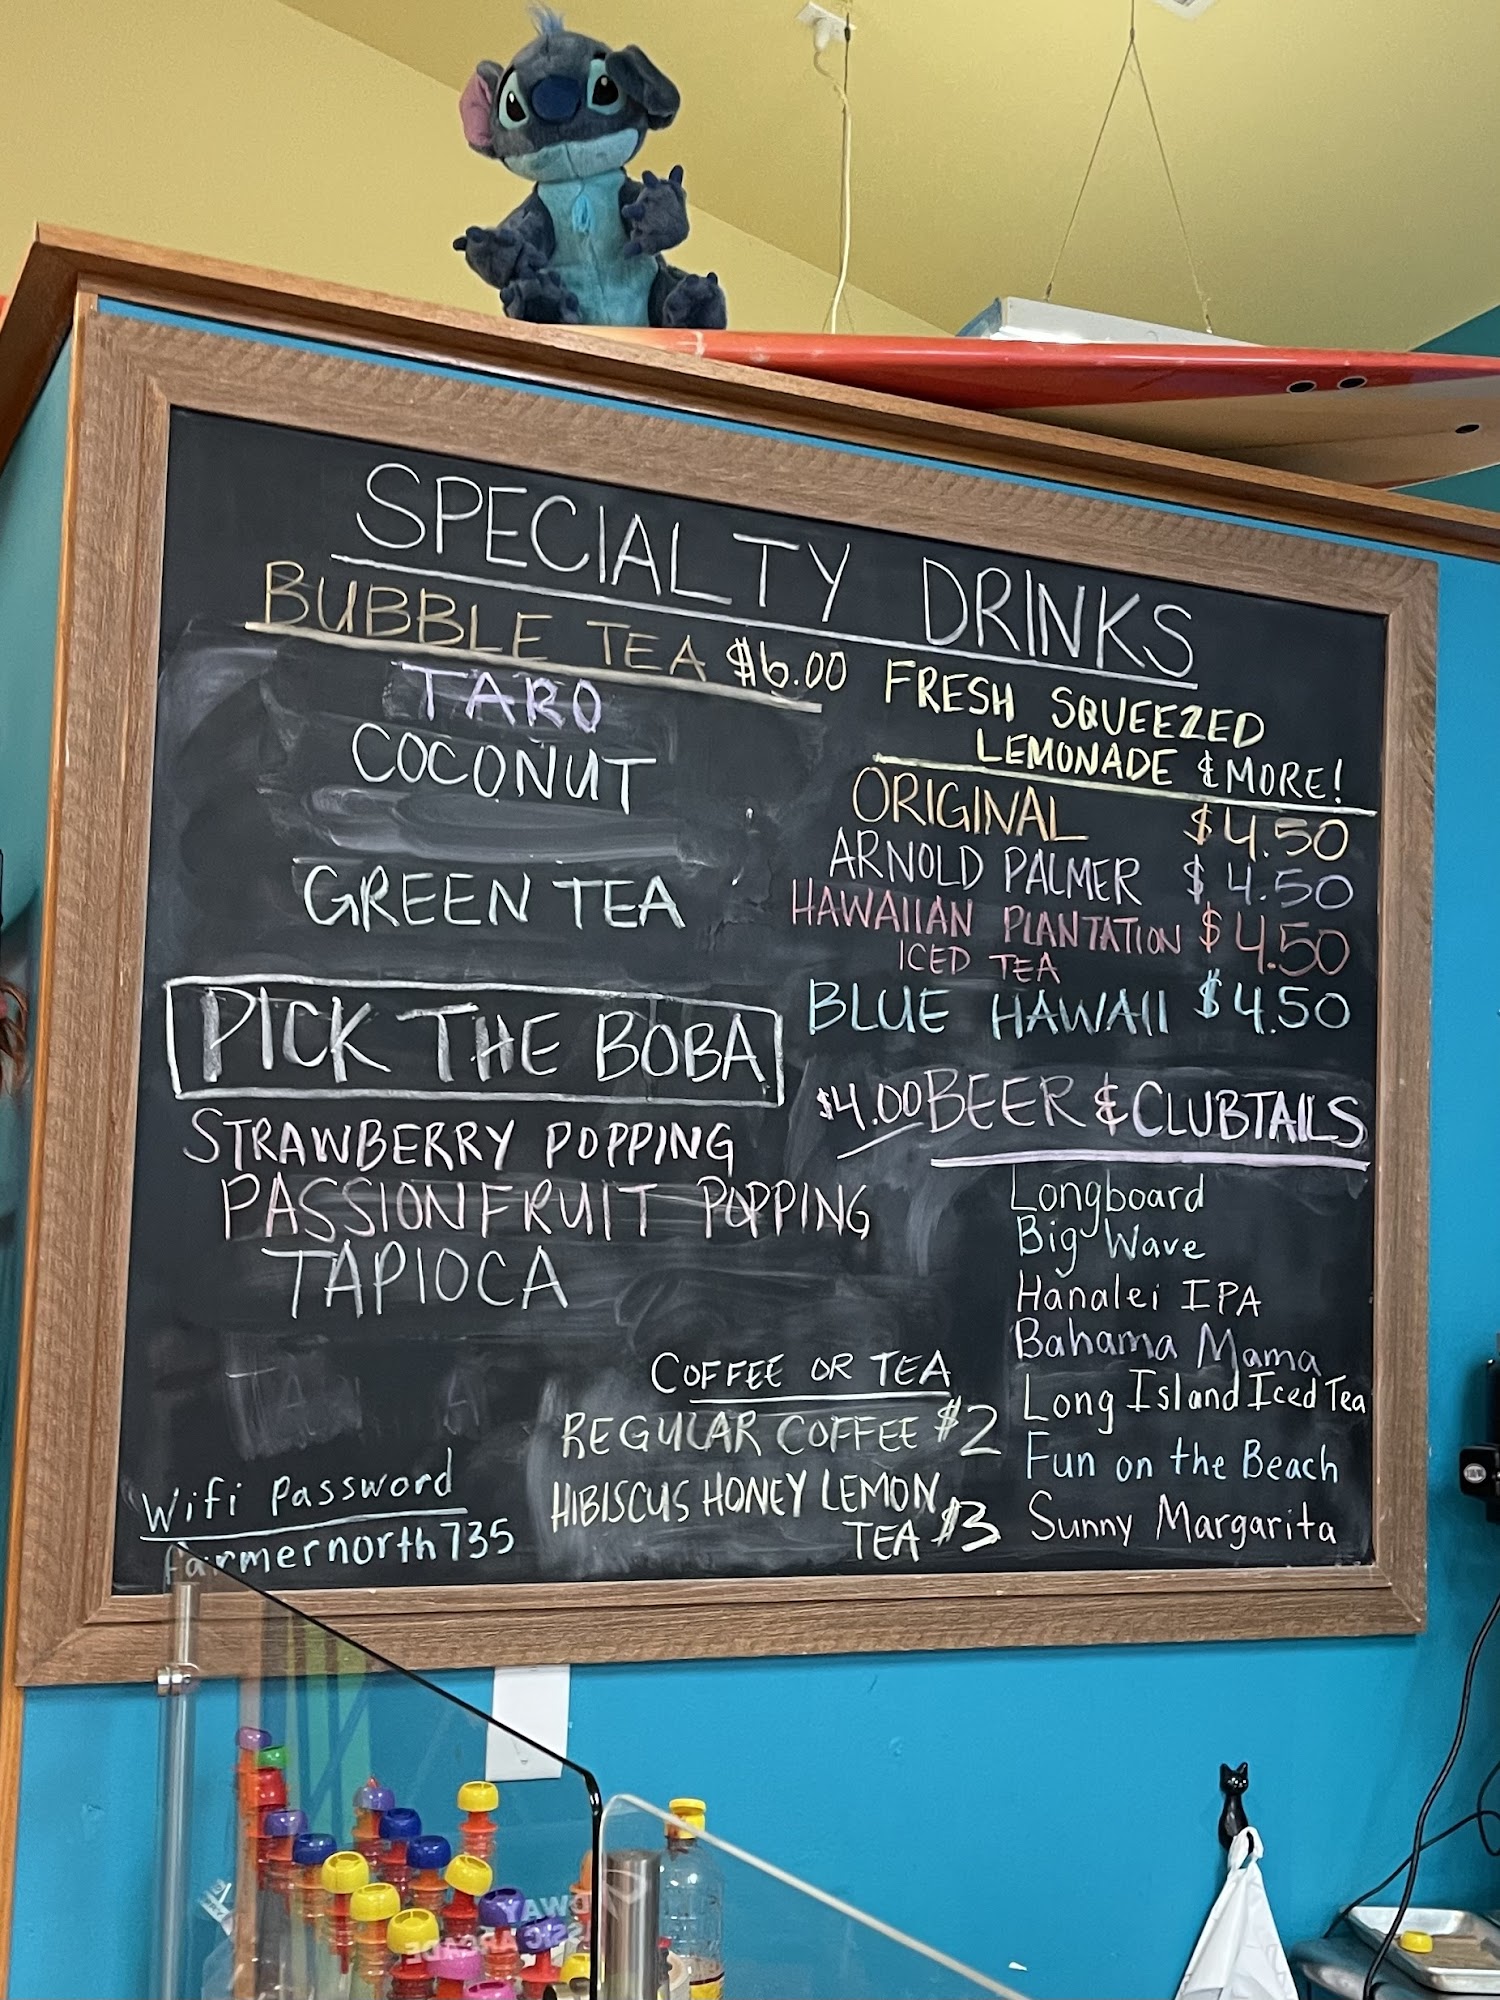 SPECIALTY DRINKS
BUBBLE TEA $6.00
TARO
COCONUT
GREEN TEA
PICK THE BOBA
STRAWBERRY POPPING
PASSIONFRUIT POPPING
TAPIOCA
Wifi Password
farmernorth735
FRESH SQUEEZED
LEMONADE & MORE!
ORIGINAL $4.50
ARNOLD PALMER $4.50
HAWAIIAN PLANTATION $4.50
ICED TEA
BLUE HAWAII $4.50
$4.00 BEER & CLUBTAILS
Longboard
Big Wave
Hanalei IPA
Bahama Mama
Long Island Iced Tea
Fun on the Beach
Sunny Margarita
COFFEE OR TEA
REGULAR COFFEE $2
HIBISCUS HONEY LEMON
TEA $3